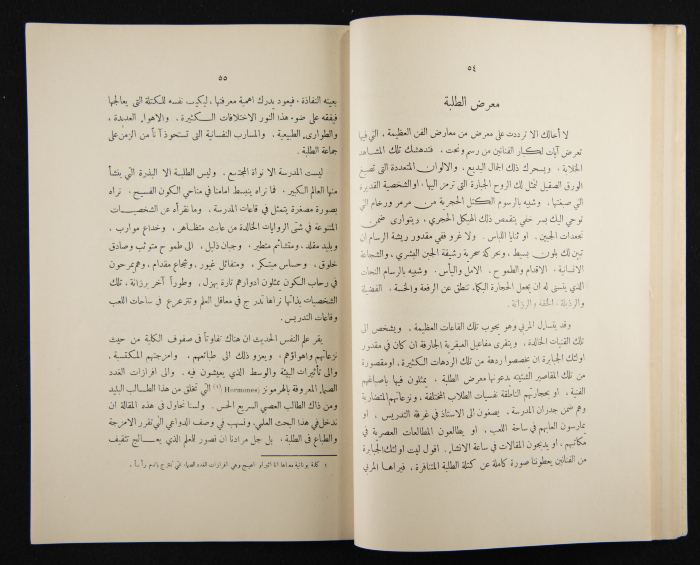 ٥٤
معرض الطلبة
لا أخالك الا ترددت على معرض من معارض الفن العظيمة ، التي فيها
تعرض آيات لكبار الفنانين من رسم ونحت . فتدهشك تلك المشاهد
الخلابة . ويسحرك ذلك الجمال البديع ، والالوان المتعددة التي تصبغ
الورق الصقيل لتمثل لك الروح الجبارة التي ترمز اليها ، او الشخصية القديرة
التي صبغتها . وشبيه بالرسوم الكتل الحجرية من مرمر ورخام التي
توحي اليك بسر خفي يتقمص ذلك الهيكل الحجري ، ويتوارى ضمن
تجعدات الجبين . او ثنايا اللباس . ولا غرو ففي مقدور ريشة الرسام ان
تبين لك بلون بسيط ، وبحركة سحرية رشيقة الجبن البشري ، والشجاعة
الانسانية . الاقدام والطموح . الامل واليأس . وشبيه بالرسام النحات
الذي يتسنى له ان يجعل الحجارة البكماء تنطق عن الرفعة والخسة . الفضيلة
والرذيلة ، الخفة والرزانة .
وقد يتساءل المربي وهو يجوب تلك القاعات العظيمة . ويشخص الى
تلك القنيات الخالدة . ويتقرى مفاعيل العبقرية الجارفة ان كان في مقدور
اولئك الجبابرة ان يخصصوا ردهة من تلك الردهات الكثيرة ، او مقصورة
من تلك المقاصير الشتيتة يدعونها معرض الطلبة . يمثلون فيها باصباغهم
الفنية . او بحجارتهم الناطقة نفسيات الطلاب المختلفة ، ونزعاتهم المتضاربة
وهم ضمن جدران المدرسة . يصغون الى الاستاذ في غرفة التدريس . او
يمارسون العابهم في ساحة اللعب . او يطالعون المطالعات العصرية في
مكاتبهم ، او يدبجون المقالات في ساعة الانشاء . اقول ليت اولئك الجبابرة
من الفنانين يعطوننا صورة كاملة عن كتلة الطلبة المتنافرة . فيراها المربي
٥٥
بعينه النفاذة ، فيعود يدرك اهمية معرفتها ، ليكيف نفسه للكتلة التي يعالجها
فيفقه على ضوء هذا النور الاختلافات الكثيرة . والاهواء العديدة ،
والطوارىء الطبيعية . والمسارب النفسانية التي تستحوذ آناً من الزمن على
جماعة الطلبة .
ليست المدرسة الا نواة المجتمع . وليس الطلبة الا البذرة التي ينشأ
منها العالم الكبير . فما نراه ينبسط امامنا في مناحي الكون الفسيح . نراه
بصورة مصغرة يتمثل في قاعات المدرسة . وما نقرأه عن الشخصيات
المتنوعة في شتى الروايات الخالدة من عات متظاهر ، وخداع موارب ،
وبليد مقلد ، ومتشائم متطير ، وجبان ذليل . الى طموح متوثب وصادق
خلوق . وحساس مبتكر ، ومتفائل غيور ، وشجاع مقدام ، وهم يمرحون
في رحاب الكون يمثلون ادوارهم تارة بهزل . وطوراً آخر برزانة ، تلك
الشخصيات بذاتها نراها تدرج في معاقل العلم وتترعرع في ساحات اللعب
وقاعات التدريس .
يقر علم النفس الحديث ان هناك تفاوتاً في صفوف الكلية من حيث
نزعاتهم واهواؤهم . ويعزو ذلك الى طبائعهم . وامزجتهم المكتسبة ،
والى تأثيرات البيئة والوسط الذي يعيشون فيه . والى افرازات الغدد
الصماء المعروفة بالهرمونز Hormones (١) التي تخلق من هذا الطالب البليد
ومن ذاك الطالب العصبي السريع الحس . ولسنا نحاول في هذه المقالة ان
ندخل في هذا البحث العلمي ، ونسهب في وصف الدواعي التي تقرر الامزجة
والطباع في الطلبة ، بل جل مرادنا ان نصور للمعلم الذي يعالج تثقيف
١ كلمة يونانية معناها انا اثير او اهيج وهي افرازات الغدد الصماء التي تمتزج بالدم رأساً .